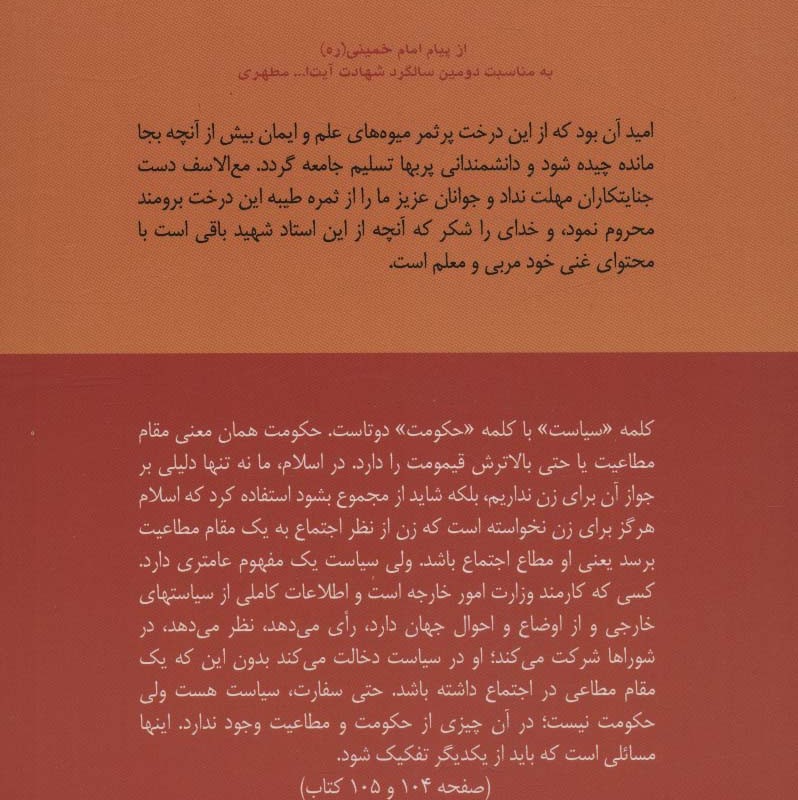 از پیام امام خمینی(ره)
به مناسبت دومین سالگرد شهادت آیت‌ا... مطهری
امید آن بود که از این درخت پرثمر میوه‌های علم و ایمان بیش از آنچه بجا
مانده چیده شود و دانشمندانی پربها تسلیم جامعه گردد. مع‌الاسف دست
جنایتکاران مهلت نداد و جوانان عزیز ما را از ثمره طیبه این درخت برومند
محروم نمود، و خدای را شکر که آنچه از این استاد شهید باقی است با
محتوای غنی خود مربی و معلم است.
کلمه «سیاست» با کلمه «حکومت» دوتاست. حکومت همان معنی مقام
مطاعیت یا حتی بالاترش قیمومت را دارد. در اسلام، ما نه تنها دلیلی بر
جواز آن برای زن نداریم، بلکه شاید از مجموع بشود استفاده کرد که اسلام
هرگز برای زن نخواسته است که زن از نظر اجتماع به یک مقام مطاعیت
برسد یعنی او مطاع اجتماع باشد. ولی سیاست یک مفهوم عامتری دارد.
کسی که کارمند وزارت امور خارجه است و اطلاعات کاملی از سیاستهای
خارجی و از اوضاع و احوال جهان دارد، رأی می‌دهد، نظر می‌دهد، در
شوراها شرکت می‌کند؛ او در سیاست دخالت می‌کند بدون این که یک
مقام مطاعی در اجتماع داشته باشد. حتی سفارت، سیاست هست ولی
حکومت نیست؛ در آن چیزی از حکومت و مطاعیت وجود ندارد. اینها
مسائلی است که باید از یکدیگر تفکیک شود.
(صفحه ۱۰۴ و ۱۰۵ کتاب)